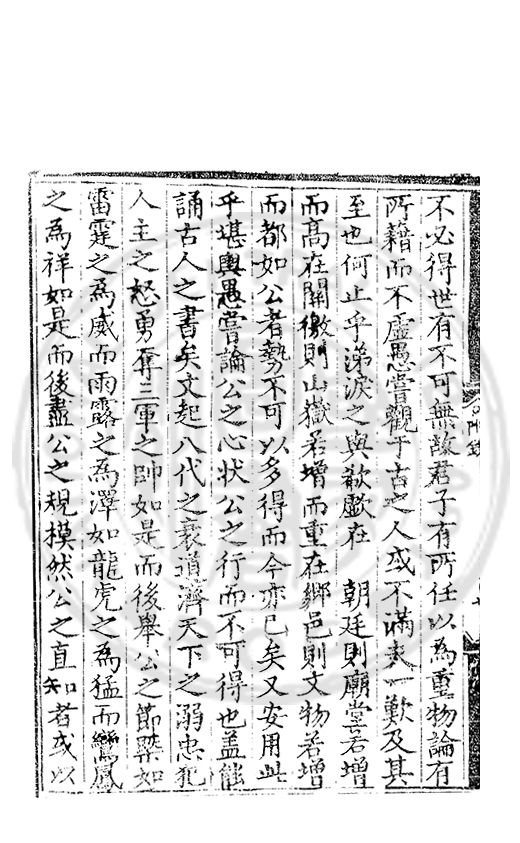 不必得世有不可無故君子有所任以為重物論有
所藉而不虛愚嘗觀于古之人或不滿夫一歎及其
至也何止乎涕淚之與欷歔在　朝廷則廟堂若增
而髙在關徼則山嶽若增而重在鄉邑則文物若增
而都如公者勢不可以多得而今亦已矣又安用此
乎堪輿愚嘗論公之心状公之行而不可得也盖能
誦古人之書矣文起八代之衰道濟天下之溺忠犯
人主之怒勇奪三軍之帥如是而後舉公之節槩如
雷霆之為威而雨露之為澤如龍虎之為猛而鸞鳳
之為祥如是而後盡公之規模然公之直知者或以
附錄